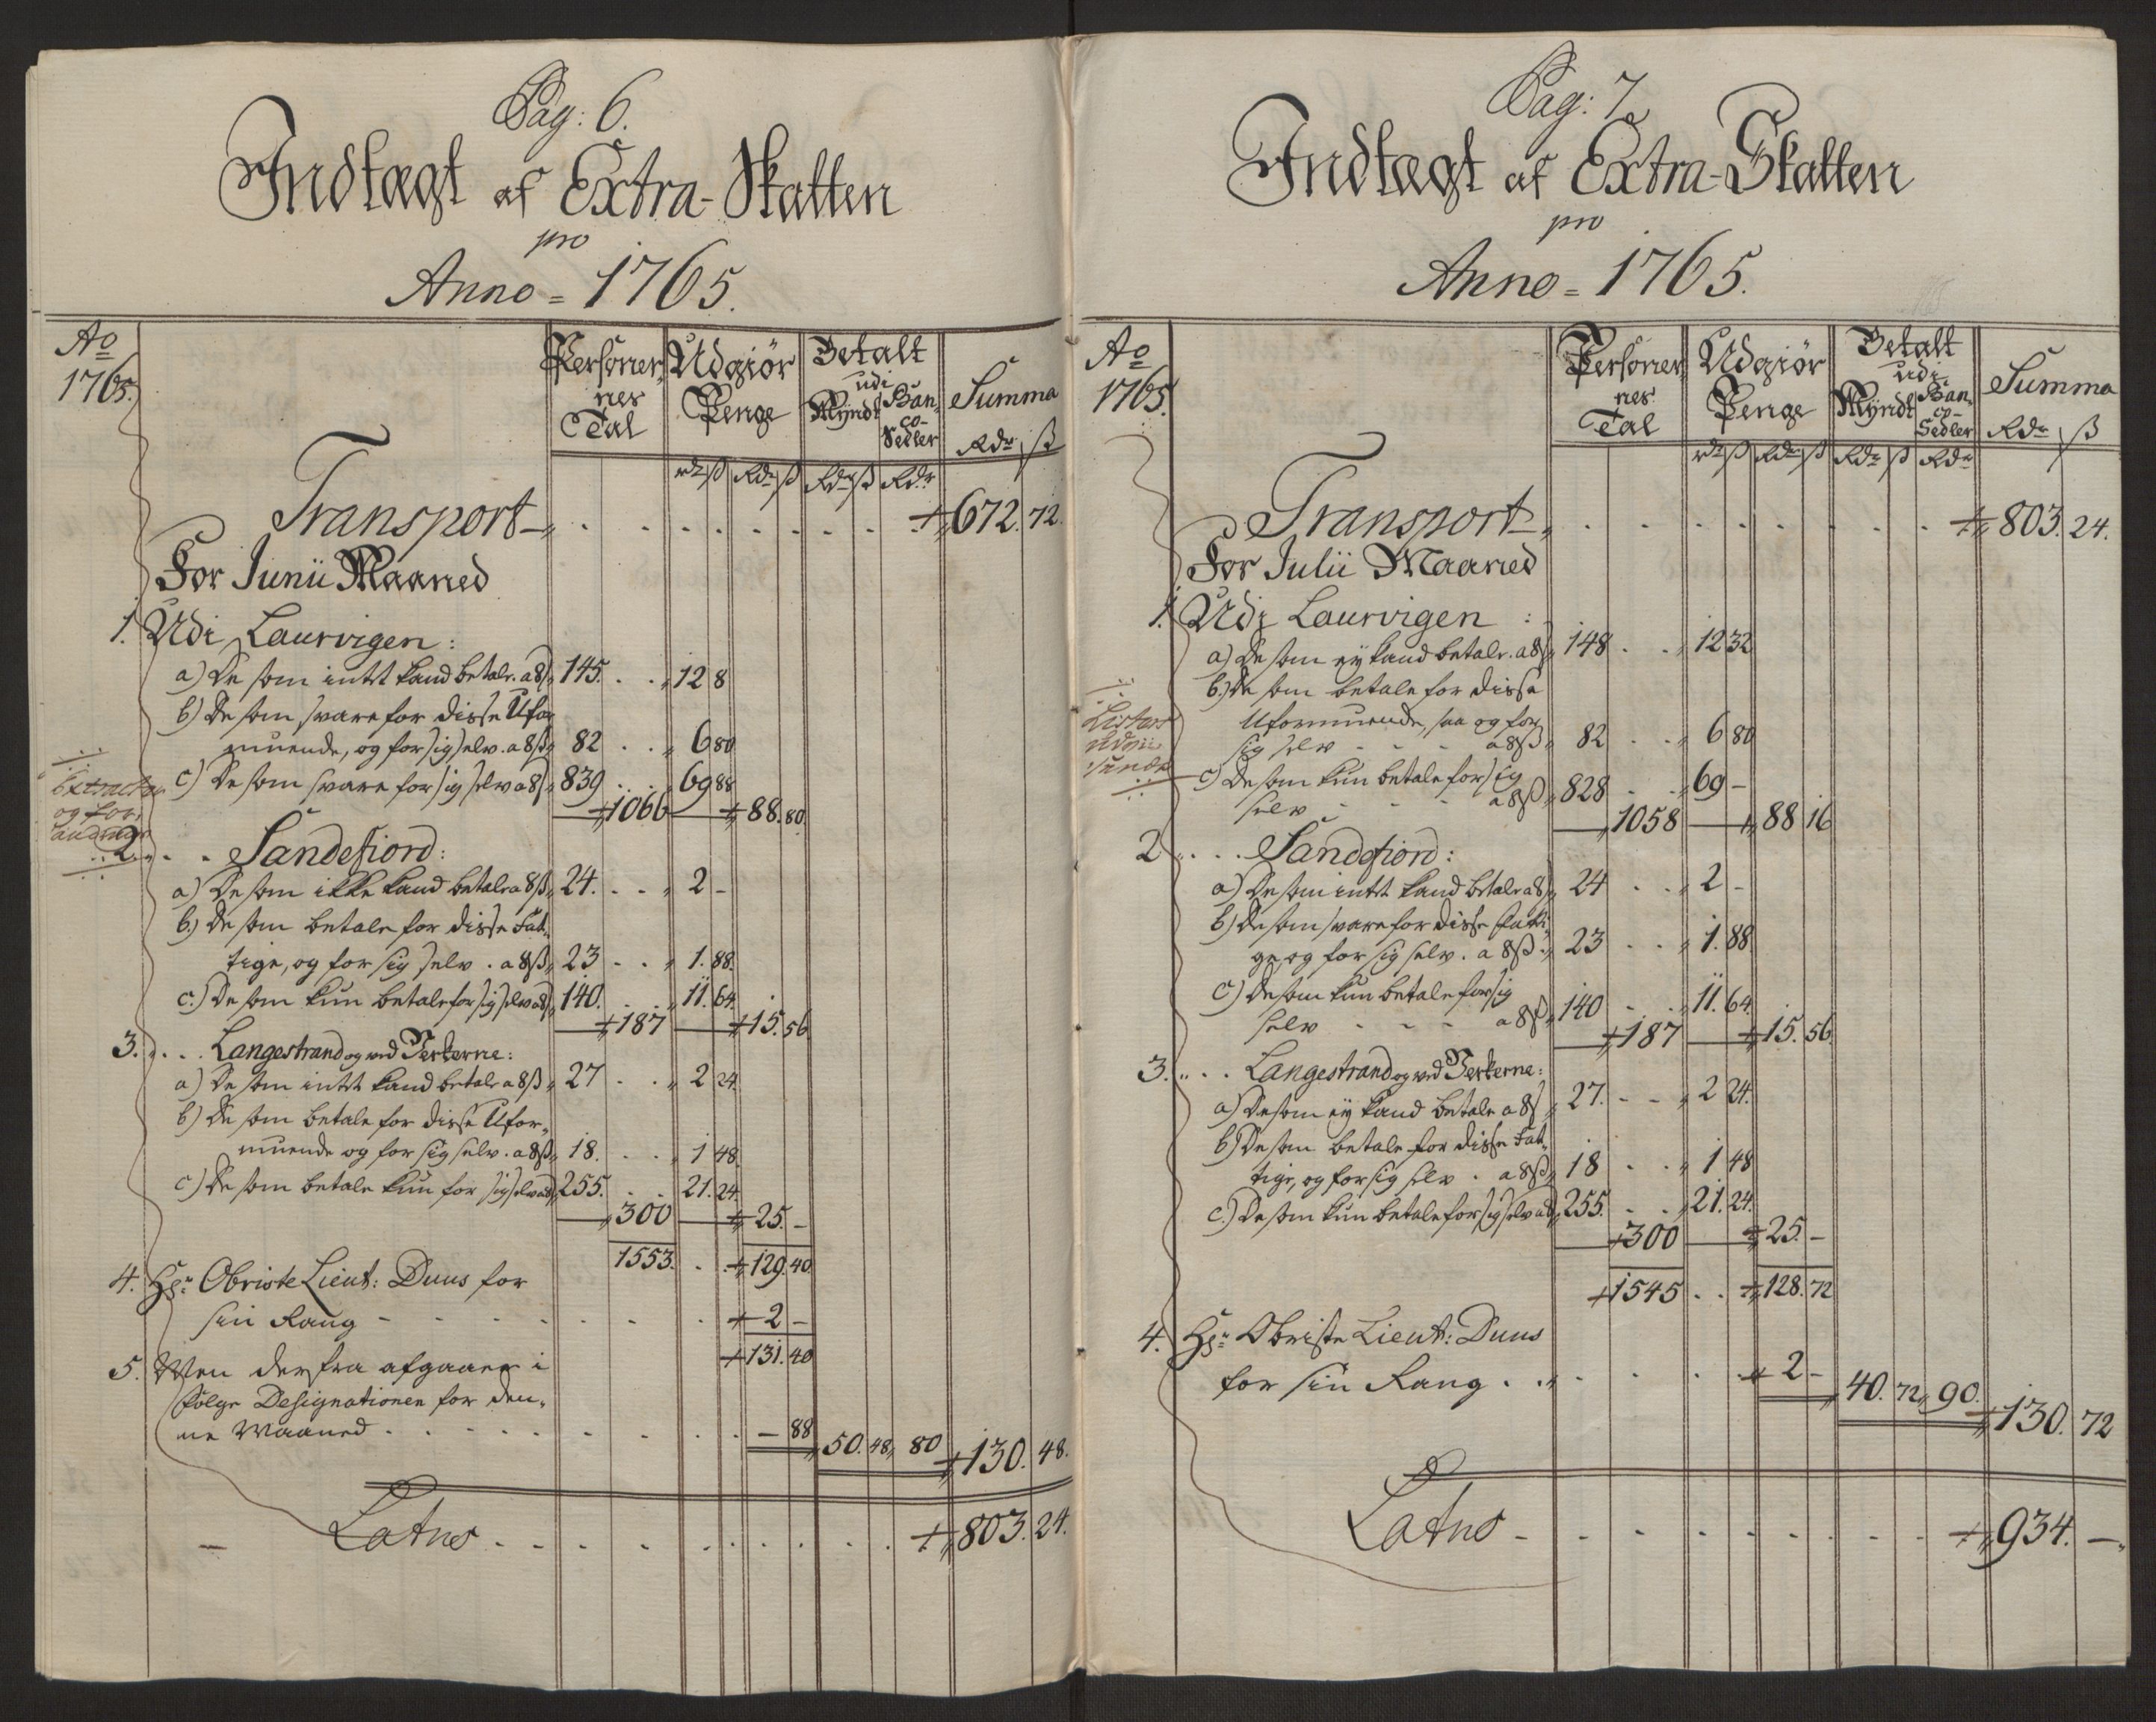 Pag: 6.
Indtægt af Extra-Skatten
pro
Anno = 1765.
Ao 1765.
Personer nes Tal
Udgiør Penge
Betalt udi Myndt Banco-Sedler
Summa
Rdr ß
rdr ß Rdr ß Rdr ß Rdr
Transport 672. 72.
For Junii Maaned
1. Udi Laurvigen:
a) De som intet kand betale a 8ß 145. 12 8
b) De som svare for disse Ufor
muende, og for sig selv. a 8ß 82 6 80
c) De som svare for sig selv a 8ß 839 69 88
1066 88. 80.
Extracten
og for
2. Sandefiord:
a) De som ikke kand betale a 8ß 24. 2 -
b.) De som betale for disse Fat-
tige, og for sig selv. a 8ß 23 1. 88.
c.) De som kun betale for sig selv a 8ß 140. 11. 64.
187 15. 56
3. Langestrand og ved Verkerne:
a) De som intet kand betale a 8ß 27 2 24.
b) De som betale for disse Ufor-
muende og for sig selv. a 8ß 18. 1 48.
c) De som betale kun for sig selv a 8ß 255. 21. 24.
300 25. -
1553. 129. 40
4. Hr: Obriste Lieut: Duus for
sin Rang - 2 -
131. 40
5. Men derfra afgaaer i
følge Designationen for den-
ne Maaned - 88 50. 48 80 130. 48.
Latus 803. 24.
Pag: 7.
Indtægt af Extra-Skatten
pro
Anno = 1765.
Ao 1765.
Personer nes Tal
Udgiør Penge
Betalt udi Myndt Banco-Sedler
Summa
Rdr ß
rdr ß Rdr ß Rdr ß Rdr
Transport 803. 24.
For Julii Maaned
1. Udi Laurvigen:
a) De som ey kand betale. a 8ß 148 12 32
b.) De som betale for disse
Uformuende, saa og for
sig selv - - - a 8ß 82 6 80
c) De som kun betale for sig
selv - - - a 8ß 828 69 -
1058 88 16
2 Sandefiord:
a) De som intet kand betale a 8ß 24 2 -
b) De som svare for disse fatti-
ge, og for sig selv. a 8ß 23 1. 88
c) De som kun betale for sig
selv - - - a 8ß 140 11. 64.
187 15. 56
3. Langestrand og ved Verkerne:
a) De som ey kand betale a 8ß 27. 2 24.
b) De som betale for disse Fat-
tige, og for sig selv. a 8ß 18 1 48
c.) De som kun betale for sig selv a 8ß 255. 21. 24.
300 25. -
1545 128. 72
4. Hr: Obriste Lieut: Duus
for sin Rang. 2 - 40. 72 90. 130. 72
Latus - 934. -